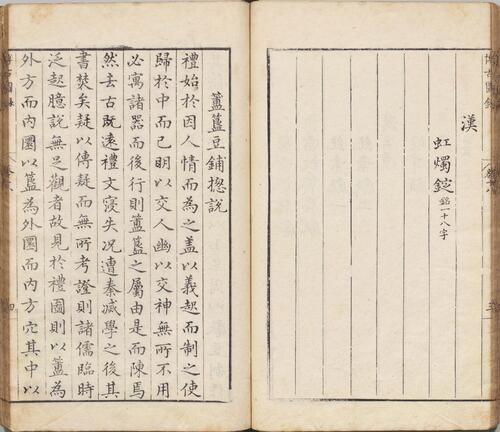 博古圖錄
漢
虹燭錠 銘一十八字
簠簋豆鋪揔說
禮始於因人情而為之盖以義起而制之使
歸於中而已明以交人幽以交神無所不用
必寓諸器而後行則簠簋之屬由是而陳焉
然去古既遠禮文寖失况遭秦滅學之後其
書焚矣疑以傳疑而無所考證則諸儒臨時
泛起臆說無足觀者故見於禮圖則以簠為
外方而內圜以簋為外圜而內方穴其中以
博古圖錄